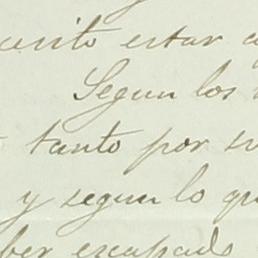 estar
Segun los
tanto por su
y segun lo que
ber escapado